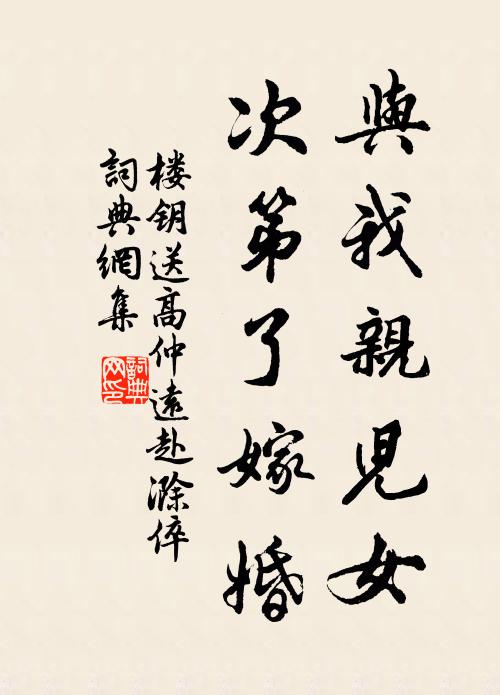 與我親兒女
次第了嫁婚
楼钥送高仲遠赴滁倅
詞典網集
詞典网印